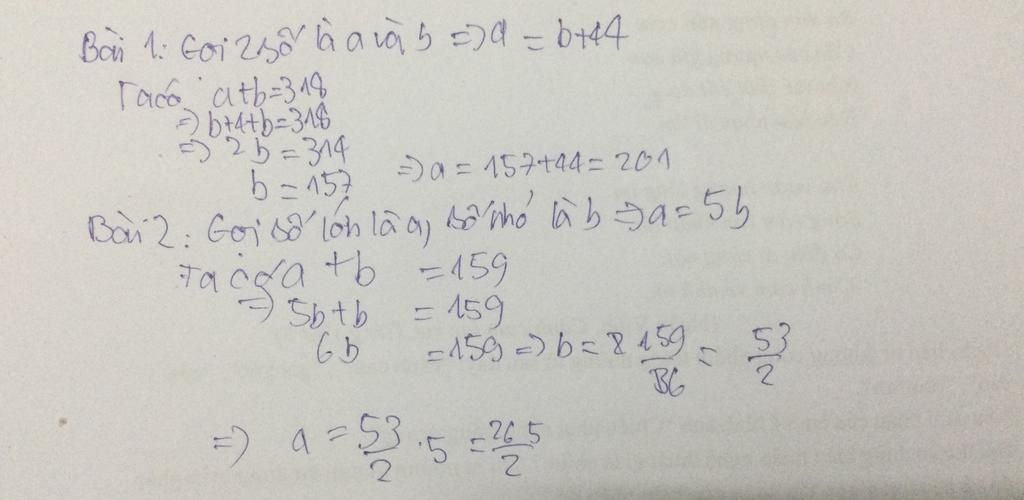 Bài 1: Gọi 2 số là a và b => a = b+44
Ta có a+b=318
=> b+4+b=318
=> 2b=314
b=157 => a = 157+44=201
Bài 2: Gọi số lớn là a, số nhỏ là b => a=5b
Ta có a+b =159
=> 5b+b =159
6b =159 => b= 159/36 = 53/2
=> a = 53/2 . 5 = 265/2